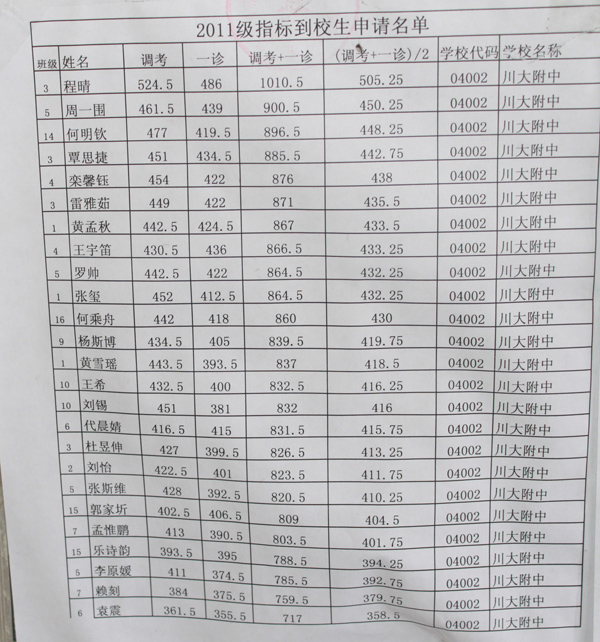 2011级指标到校生申请名单
班级 姓名 调考 一诊 调考+一诊 (调考+一诊)/2 学校代码 学校名称
3 程晴 524.5 486 1010.5 505.25 04002 川大附中
5 周一围 461.5 439 900.5 450.25 04002 川大附中
14 何明钦 477 419.5 896.5 448.25 04002 川大附中
3 覃思捷 451 434.5 885.5 442.75 04002 川大附中
4 栾馨钰 454 422 876 438 04002 川大附中
3 雷雅茹 449 422 871 435.5 04002 川大附中
1 黄孟秋 442.5 424.5 867 433.5 04002 川大附中
4 王宇笛 430.5 436 866.5 433.25 04002 川大附中
5 罗帅 442.5 422 864.5 432.25 04002 川大附中
1 张玺 452 412.5 864.5 432.25 04002 川大附中
16 何乘舟 442 418 860 430 04002 川大附中
9 杨斯博 434.5 405 839.5 419.75 04002 川大附中
1 黄雪瑶 443.5 393.5 837 418.5 04002 川大附中
10 王希 432.5 400 832.5 416.25 04002 川大附中
10 刘锡 451 381 832 416 04002 川大附中
6 代晨婧 416.5 415 831.5 415.75 04002 川大附中
3 杜昱伸 427 399.5 826.5 413.25 04002 川大附中
2 刘怡 422.5 401 823.5 411.75 04002 川大附中
5 张斯维 428 392.5 820.5 410.25 04002 川大附中
15 郭家圻 402.5 406.5 809 404.5 04002 川大附中
7 孟惟鹏 413 390.5 803.5 401.75 04002 川大附中
15 乐诗韵 393.5 395 788.5 394.25 04002 川大附中
5 李原媛 411 374.5 785.5 392.75 04002 川大附中
7 赖刻 384 375.5 759.5 379.75 04002 川大附中
6 袁震 361.5 355.5 717 358.5 04002 川大附中